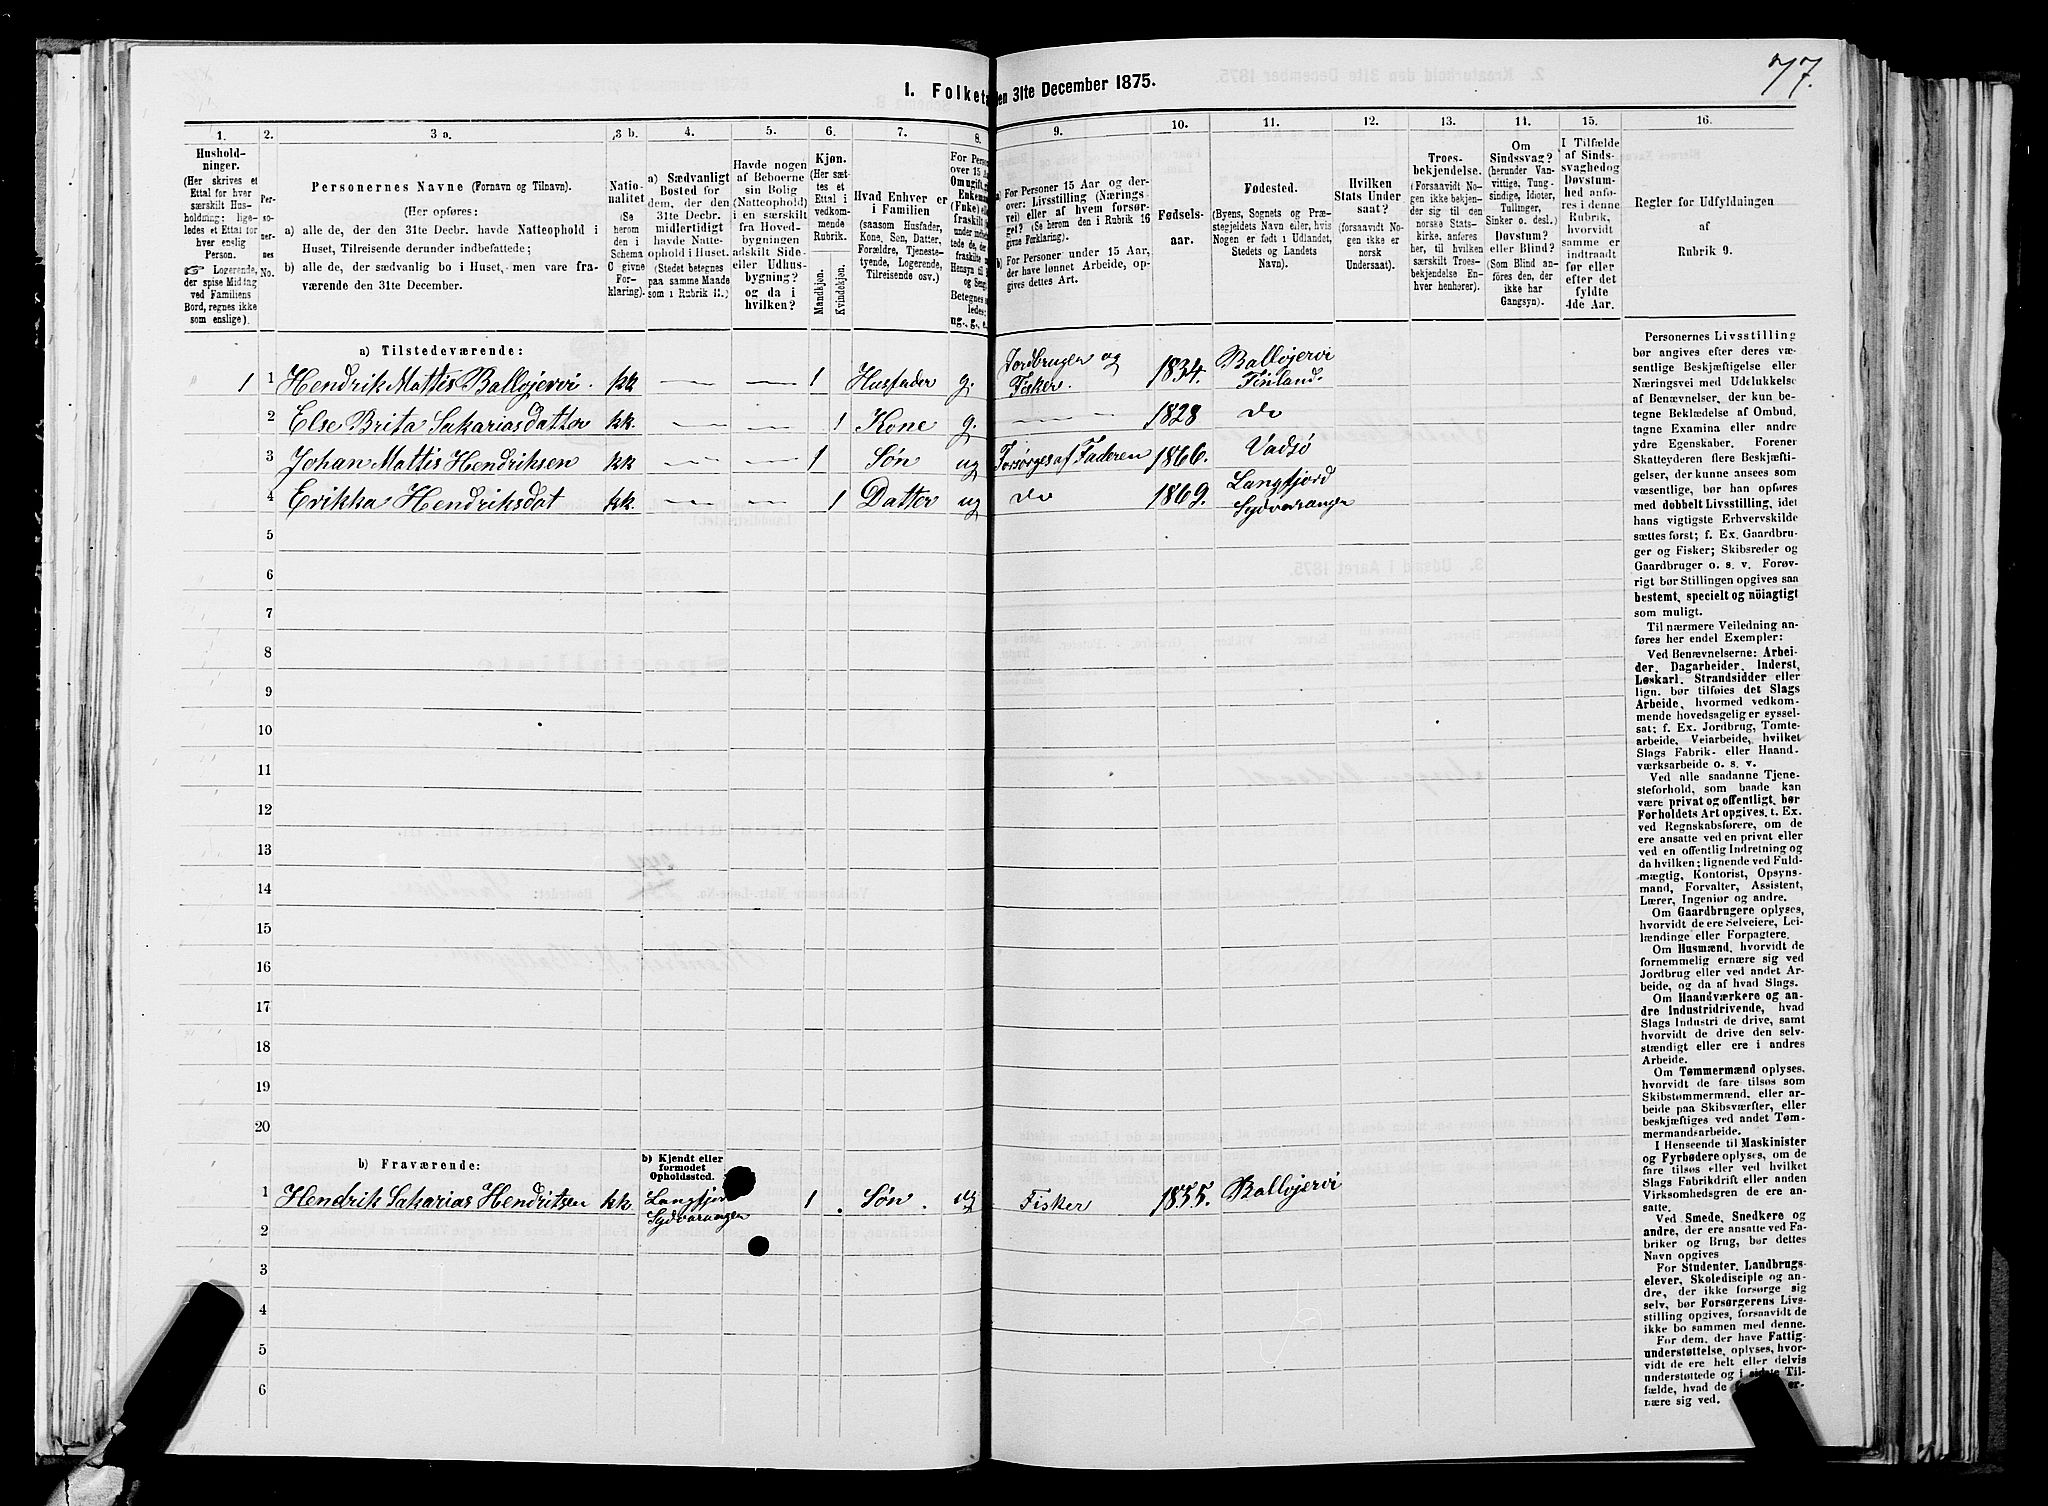 77.
1. Folket
en 31te December 1875.
1.
2.
3 a.
3 b.
4.
5.
6.
7.
8.
9.
10.
11.
12.
13.
14.
15.
16.
Hushold-
ninger.
(Her skrives et
Ettal for hver
særskilt Hus-
holdning; lige-
ledes et Ettal for
hver enslig
Person.
☞ Logerende,
der spise Middag
ved Familiens
Bord, regnes ikke
som enslige).
Per-
so-
ner-
nes
No.
Personernes Navne (Fornavn og Tilnavn).
(Her opføres:
a) alle de, der den 31te Decbr. havde Natteophold i
Huset, Tilreisende derunder indbefattede;
b) alle de, der sædvanlig bo i Huset, men vare fra-
værende den 31te December.
Natio-
nalitet
(Se
herom
den i
Schema
C givne
For-
klaring).
a) Sædvanligt
Bosted for
dem, der den
31te Decbr.
midlertidigt
havde Natte-
ophold i Huset.
(Stedet betegnes
paa samme Maade
som i Rubrik 11.)
Havde nogen
af Beboerne
sin Bolig
(Natteophold)
i en særskilt
fra Hoved-
bygningen
adskilt Side-
eller Udhus-
bygning?
og da i
hvilken?
Kjøn.
(Her sæt-
tes et
Ettal i
vedkom-
mende
Rubrik.
Mandkjøn.
Kvindekjøn.
Hvad Enhver er
i Familien
(saasom Husfader,
Kone, Søn, Datter,
Forældre, Tjeneste-
tyende, Logerende,
Tilreisende osv.)
For Person
over 15 Aa
Om ugift, g
Enkema
(Fuke) el
fraskilt
a) For Personer 15 Aar og der-
over: Livsstilling (Nærings-
vei) eller af hvem forsør-
get (Se herom den i Rubrik 16
givne Forklaring).
b) For Personer under 15 Aar,
der have lønnet Arbeide, op-
gives dettes Art.
Fødsels-
aar.
Fødested.
(Byens, Sognets og Præ-
stegjeldets Navn eller, hvis
Nogen er født i Udlandet,
Stedets og Landets
Navn).
Hvilken
Stats Under
saat?
(forsaavidt No-
gen ikke er
norsk
Undersaat).
Troes-
bekjendelse.
(Forsaavidt No-
gen ikke bekjen-
der sig til den
norske Stats-
kirke, anføres
her, til hvilken
særskilt Troes-
bekjendelse En-
hver henhører).
Om
Sindssvag?
(herunder Van-
vittige, Tung-
sindige, Idioter,
Tullinger,
Sinker o. desl.)
Døvstum?
eller Blind?
(Som Blind an-
føres den, der
ikke har
Gangsyn).
I Tilfælde
af Sinds-
svaghed og
Døvstum-
hed anfø-
res i denne
Rubrik,
hvorvidt
samme er
indtraadt
før eller
efter det
fyldte
4de Aar.
Regler for Udfyldningen
af
Rubrik 9.
a) Tilstedeværende:
1 1 Hendrik Mattis Ballojervi. kk — — 1 Husfader g. Jordbruger og Fisker. 1834. Ballojervi Finland.
2 Else Brita Sakariasdatter kk. — — 1 Kone g. — 1828 do
3 Johan Mattis Hendriksen kk — — 1 Søn ug Forsørges af Faderen 1866. Vadsø
4 Erikka Hendriksdat kk. — — 1 Datter ug do 1869. Langfjord Sydvaranger
5
6
7
8
9
10
11
12
13
14
15
16
17
18
19
20
b) Fraværende:
b) Kjendt eller
formodet
Opholdssted.
1 Hendrik Sakarias Hendritsen kk. Langfjord Sydvaranger 1 Søn ug Fisker 1855. Ballojervi
2
3
4
5
6
Personernes Livsstilling
bør angives efter deres væ-
sentlige Beskjæftigelse eller
Næringsvei med Udelukkelse
af Benævnelser, der kun be-
tegne Beklædelse af Ombud,
tagne Examina eller andre
ydre Egenskaber. Forener
Skatteyderen flere Beskjæfti-
gelser, der kunne ansees som
væsentlige, bør han opføres
med dobbelt Livsstilling, idet
hans vigtigste Erhvervskilde
sættes først; f. Ex. Gaardbru-
ger og Fisker; Skibsreder og
Gaardbruger o. s. v. Forøv-
rigt bør Stillingen opgives saa
bestemt, specielt og nöiagtigt
som muligt.
Til nærmere Veiledning an-
føres her endel Exempler:
Ved Benævnelserne: Arbei-
der, Dagarbeider, Inderst,
Løskarl, Strandsidder eller
lign. bør tilføies det Slags
Arbeide, hvormed vedkom-
mende hovedsagelig er syssel-
sat; f. Ex. Jordbrug, Tomte-
arbeide, Veiarbeide, hvilket
Slags Fabrik- eller Haand-
værksarbeide o. s. v.
Ved alle saadanne Tjene-
steforhold, som baade kan
være privat og offentligt, bør
Forholdets Art opgives, t. Ex.
ved Regnskabsførere, om de
ere ansatte ved en privat eller
ved en offentlig Indretning og
da hvilken; lignende ved Fuld-
mægtig, Kontorist, Opsyns-
mand, Forvalter, Assistent,
Lærer, Ingeniør og andre.
Om Gaardbrugere oplyses,
hvorvidt de ere Selveiere, Lei-
lændinge eller Forpagtere.
Om Husmænd, hvorvidt de
fornemmelig ernære sig ved
Jordbrug eller ved andet Ar-
beide, og da af hvad Slags.
Om Haandværkere og an-
dre Industridrivende, hvad
Slags Industri de drive, samt
hvorvidt de drive den selv-
stændigt eller ere i andres
Arbeide.
Om Tømmermænd oplyses,
hvorvidt de fare tilsøs som
Skibstømmermænd, eller ar-
beide paa Skibsværfter, eller
beskjæftiges ved andet Tøm-
mermandsarbeide.
I Henseende til Maskinister
og Fyrbødere oplyses, om de
fare tilsøs eller ved hvilket
Slags Fabrikdrift eller anden
Virksomhedsgren de ere an-
satte.
Ved Smede, Snedkere og
andre, der ere ansatte ved Fa-
briker og Brug, bør dettes
Navn opgives
For Studenter, Landbrugs-
elever, Skoledisciple og an-
dre, der ikke forsørge sig
selv, bør Forsørgerens Livs-
stilling opgives, forsaavidt de
ikke bo sammen med denne.
For dem, der have Fattig-
understøttelse, oplyses, hvor-
vidt de ere helt eller delvis
understøttede og i sidste Til-
fælde, hvad de
nære sig ved.